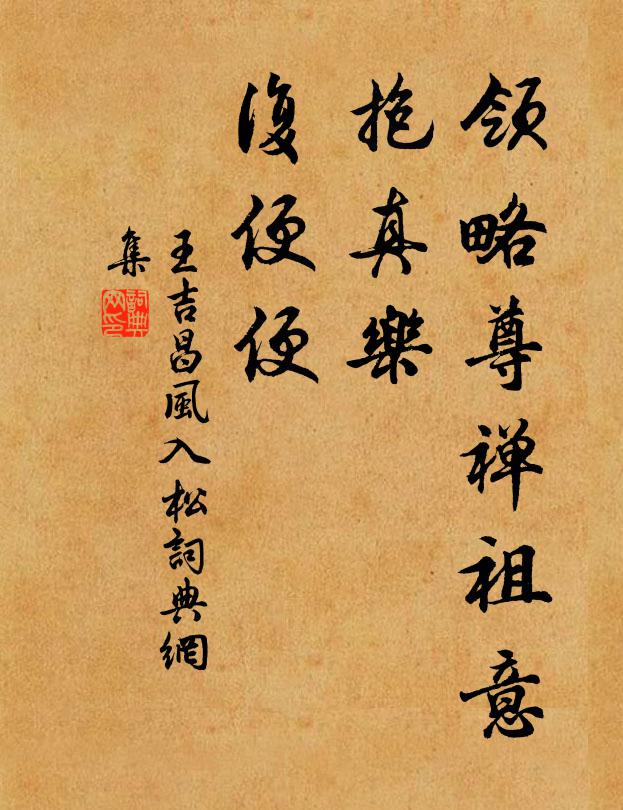 领略尊禅祖意
抱真樂
復便便
王吉昌風入松詞典網
集
詞典
网印